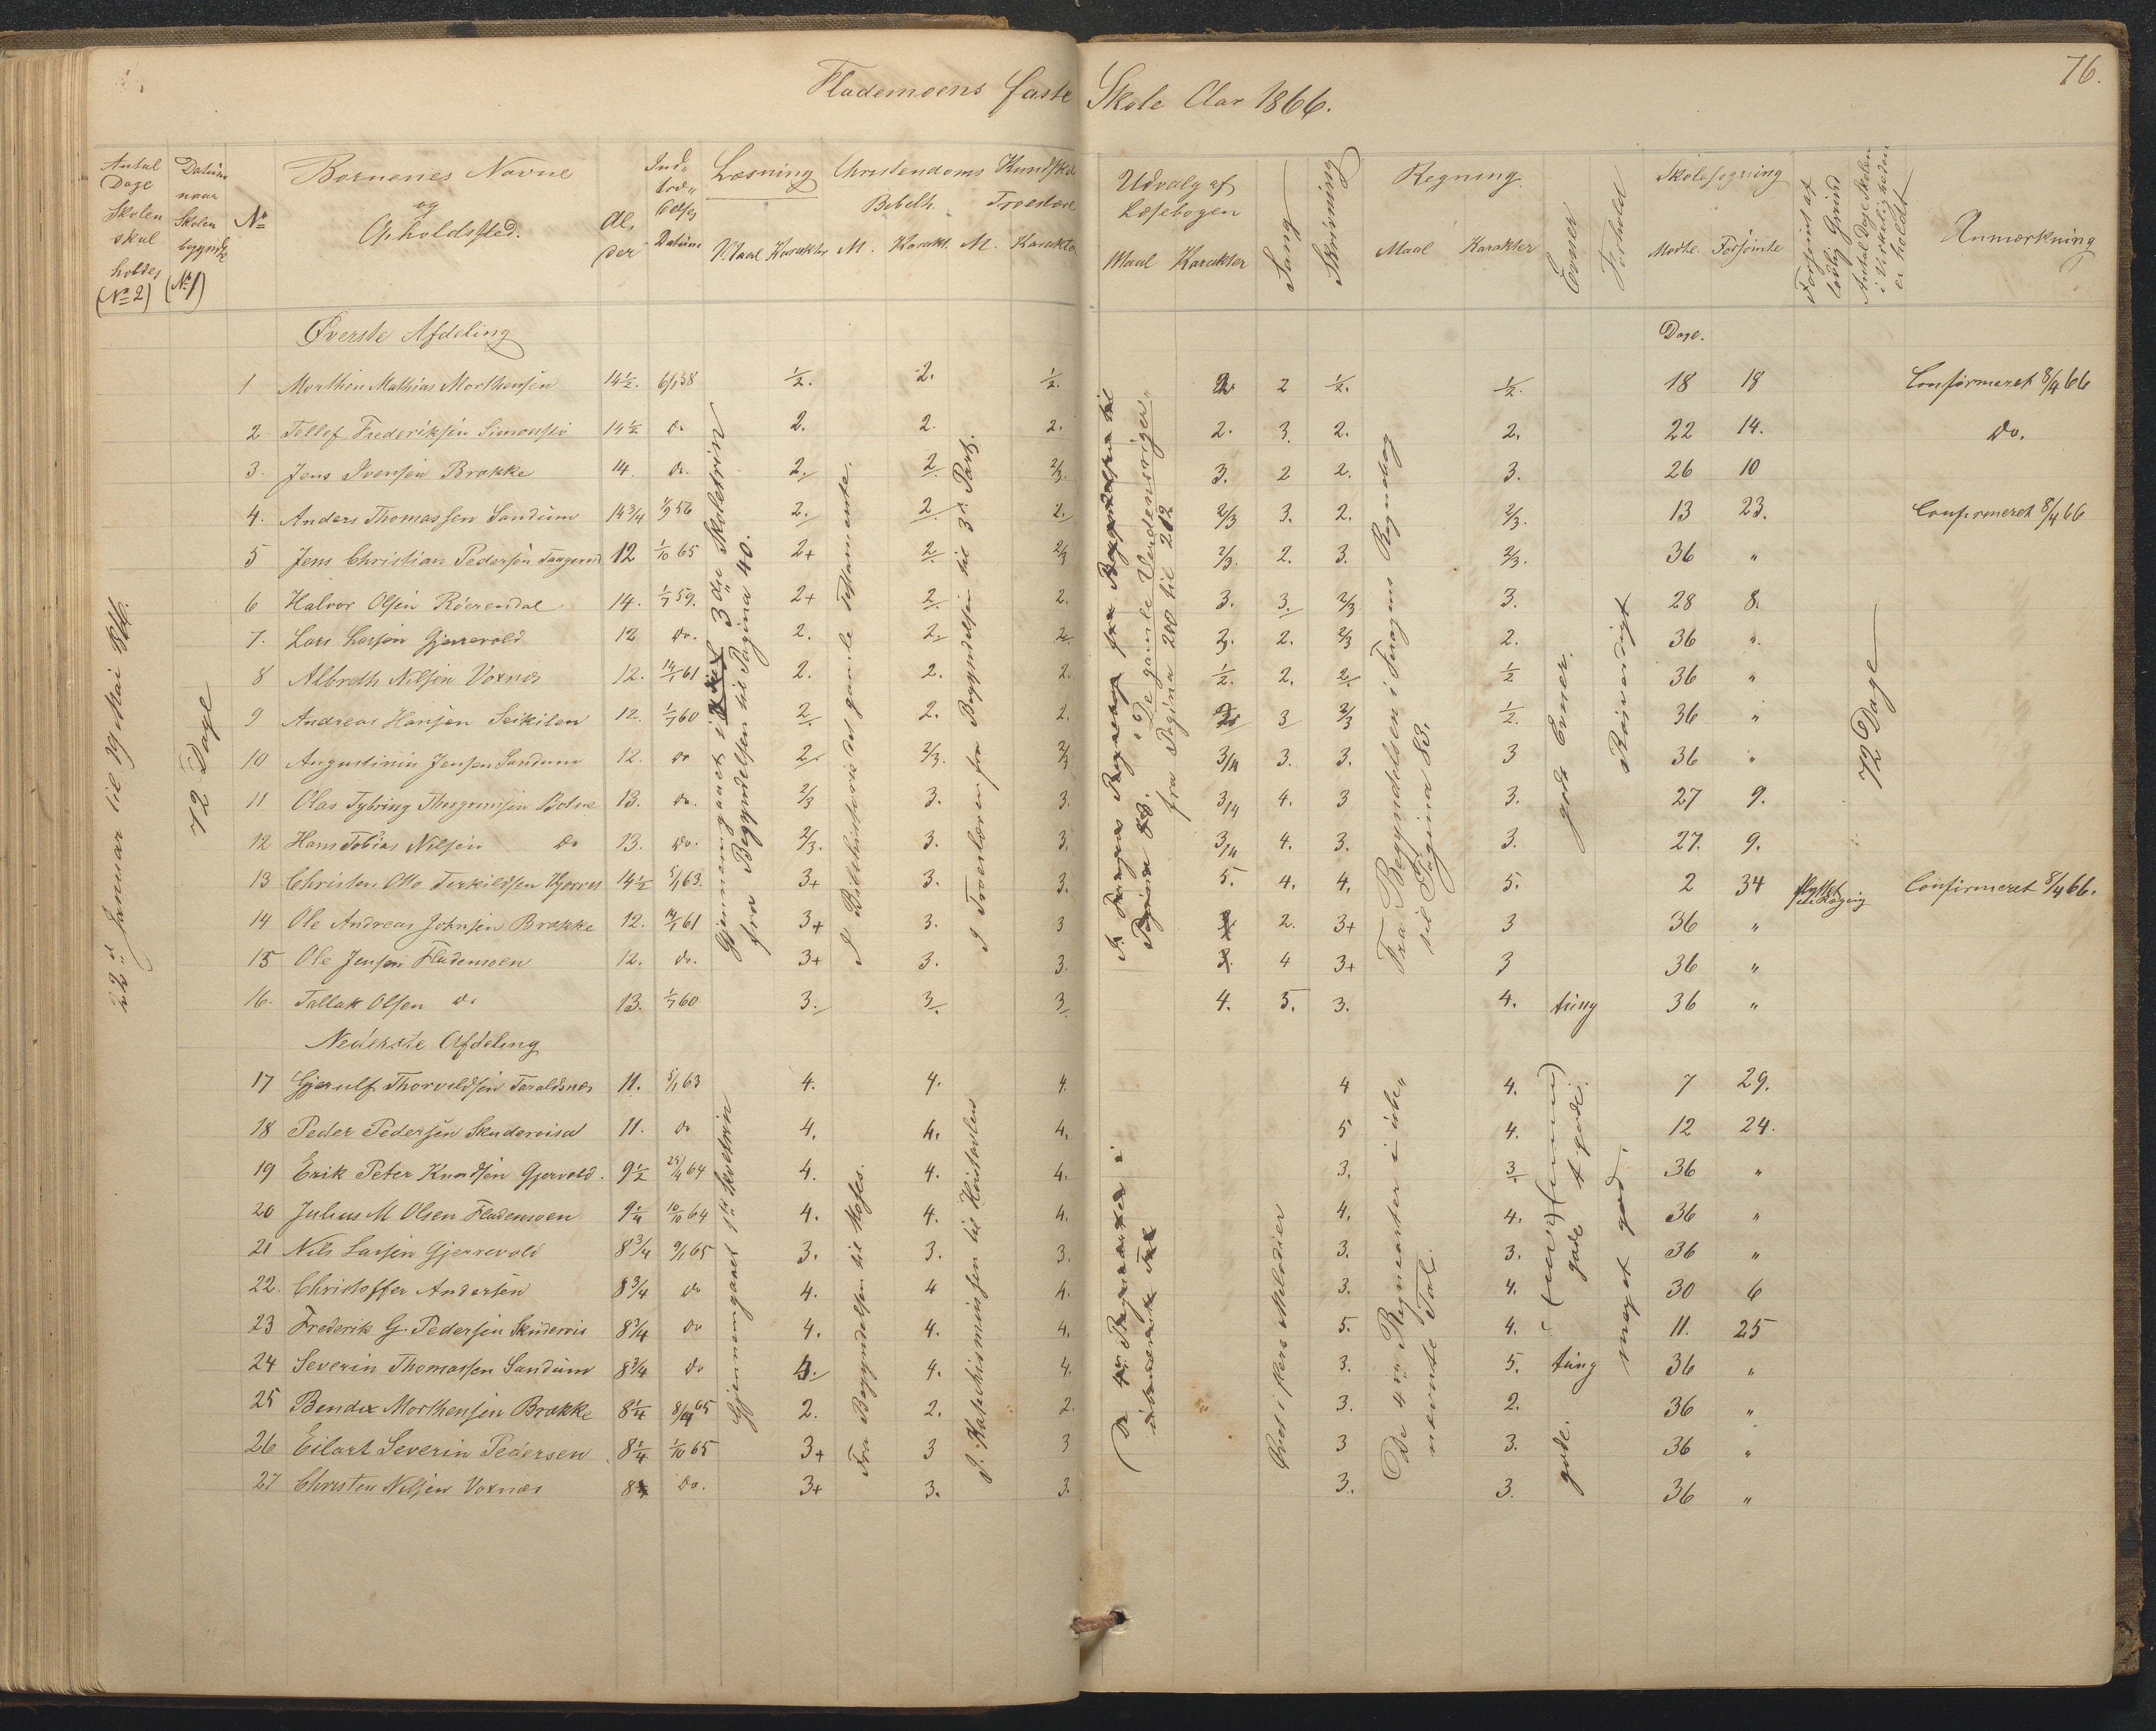 76.
Flademoens faste Skole Aar 1866.
Antal Dage Skolen skal holdes (No 2)
Datum naar Skolen begyndte (No 1)
No
Børnenes Navne og Opholdssted.
Alder
Indtrædelses Datum
Læsning Maal Karakter
Christendoms Kundskab
Bibelh. M. Karakt.
Troeslære M. Karakter
Udvalg af Læsebogen Maal Karakter
Sang
Skrivning
Regning Maal Karakter
Evner
Forhold
Skolesøgning Mødte. Forsømte
Forsømt af lovlig Grund
Antal Dage Skolen i Virkeligheden er holdt
Anmærkning
Øverste Afdeling
Dage.
1 Morthen Mathias Morthensen 14½. 6/1 58 ½. 2. ½. 2. 2 ½. ½. 18 18 Confirmeret 8/4 66
2 Tellef Frederiksen Simonstø 14½ do 2. 2. 2. 2. 3. 2. 2. 22 14. do.
3. Jens Ivensen Brække 14. do. 2. 2 2/3. 3. 2 2. 3. 26 10
4. Anders Thomassen Sandum 14¾ 2. 2. 2. 2/3 3. 2. 2/3. 13 23. Confirmeret 8/4 66
5 Jens Christian Pedersen 12 1/10 65 2+ 2. 2/3 2/3. 2. 3. 2/3. 36 "
6 Halvor Olsen Röerendal 14. 1/7 59. 2+ 2. 2. 3. 3. 2/3 3. 28 8.
7. Lars Larsen Gjerrevold 12 do. 2. 2. 2. 3. 2. 2/3 2. 36 ".
8 Albreth Nilsen Voxnes 12. 14/1 61 2. 2. 2. ½. 2. 2. ½ 36 "
9 Andreas Hansen Seikilen 12. 1/7 60 2 2. 2. 2. 3 2/3 ½. 36 "
10 Augustinius Jensen Sandum 12. do 2. 2/3. 2/3 3/4 3. 3. 3 36 "
11 Olas Tybring Thorgrimsen Botne 13. do. 2/3 3. 3. 3/4 4. 3 3. 27 9.
12 Hans Tobias Nilsen do 13. do. 2/3. 3. 3. 3/4 4. 3. 3. 27. 9.
13 Christen Olle Terkildsen 14½ 5/1 63. 3+ 3. 3. 5. 4. 4. 5. 2 34 flyttet Confirmeret 8/4 66.
14 Ole Andreas Johnsen Brække 12. 14/1 61 3+ 3. 3 3. 2. 3+ 3 36 "
15 Ole Jensen Flademoen 12. do. 3+ 3. 3. 3. 4 3+ 3 36 "
16. Tallak Olsen do 13. 1/7 60 3. 3. 3 4. 5. 3. 4. tung 36 "
Nederste Afdeling
17 Gjerulf Thorvaldsen Taraldsnes 11. 5/1 63 4. 4. 4. 4 4. 7 29.
18 Peder Pedersen 11. do 4. 4. 4. 5 4. 12 24.
19 Erik Peter Knudsen Gjervold. 9½ 25/4 64 4. 4. 4. 3. 3 36 "
20 Julius M Olsen Flademoen 9¼ 10/10 64 4. 4. 4. 4. 4. 36 "
21 Nils Larsen Gjerrevold 8¾ 9/1 65 3. 3. 3. 3. 3. 36 "
22. Christoffer Andersen 8¾ do 4. 4 4. 3. 4. 30 6
23 Frederik G. Pedersen 8¾ do 4. 4. 4. 5. 4. 11. 25
24 Severin Thomassen Sandum 8¾ do 4. 4. 4. 3. 5. tung 36 "
25 Bendix Morthensen Brække 8¼ 2. 2. 2. " 3. 2. 36 "
26 Eilart Severin Pedersen 8¼ 1/10 65 3+ 3 3 3 3. 36 "
27 Christen Nilsen Voxnes 8¼ do. 3+ 3. 3. 3. 3. 36 "
Januar til 19 Mai
72 Dage
Gjennemgaaet i 3die Skoletrin
fra Begyndelsen til Pagina 40.
I Bibelhistorie det gamle Testamente.
I Troeslæren fra Begyndelsen til 3die Part.
"De gamle Verdensriger"
fra Pagina 200 til 212
Fra Begyndelsen i Regnebog
til Pagina 83.
gode Evner.
Roesværdigt
72 Dage
Gjennemgaaet 1ste Skoletrin
Fra Begyndelsen til Moses.
I Katechismusen til Huustavlen
Prøvet i flere Melodier
De 4 Regnearter i ubenævnte Tal.
gode.
meget god.